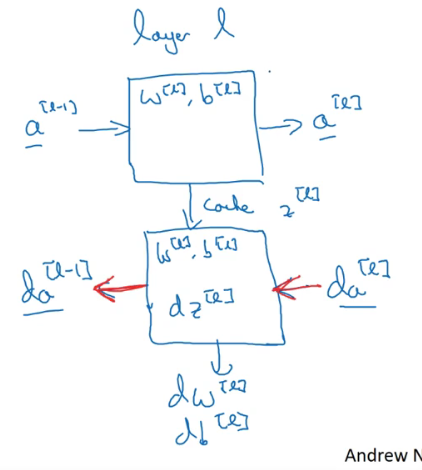 layer l
w^[l], b^[l]
a^[l-1]
a^[l]
cache z^[l]
w^[l], b^[l]
da^[l-1]
dz^[l]
da^[l]
dw^[l]
db^[l]
Andrew N